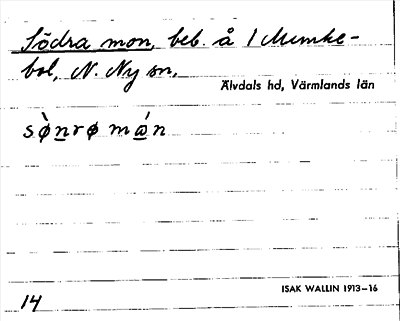 Södra mon, beb. å 1 Munke-
bol, N. Ny sn.
Älvdals hd, Värmlands län
sø̀nrø mǻn
ISAK WALLIN 1913–16
14